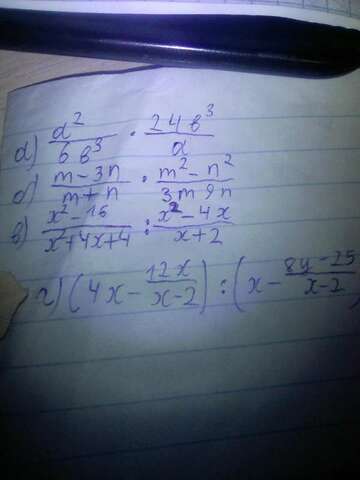 а) a²/6b³ · 24b³/a
б) m-3n/m+n · m²-n²/3m9n
в) x²-16/x²+4x+4 : x²-4x/x+2
г) (4x - 12x/x-2) : (x - 8y-25/x-2